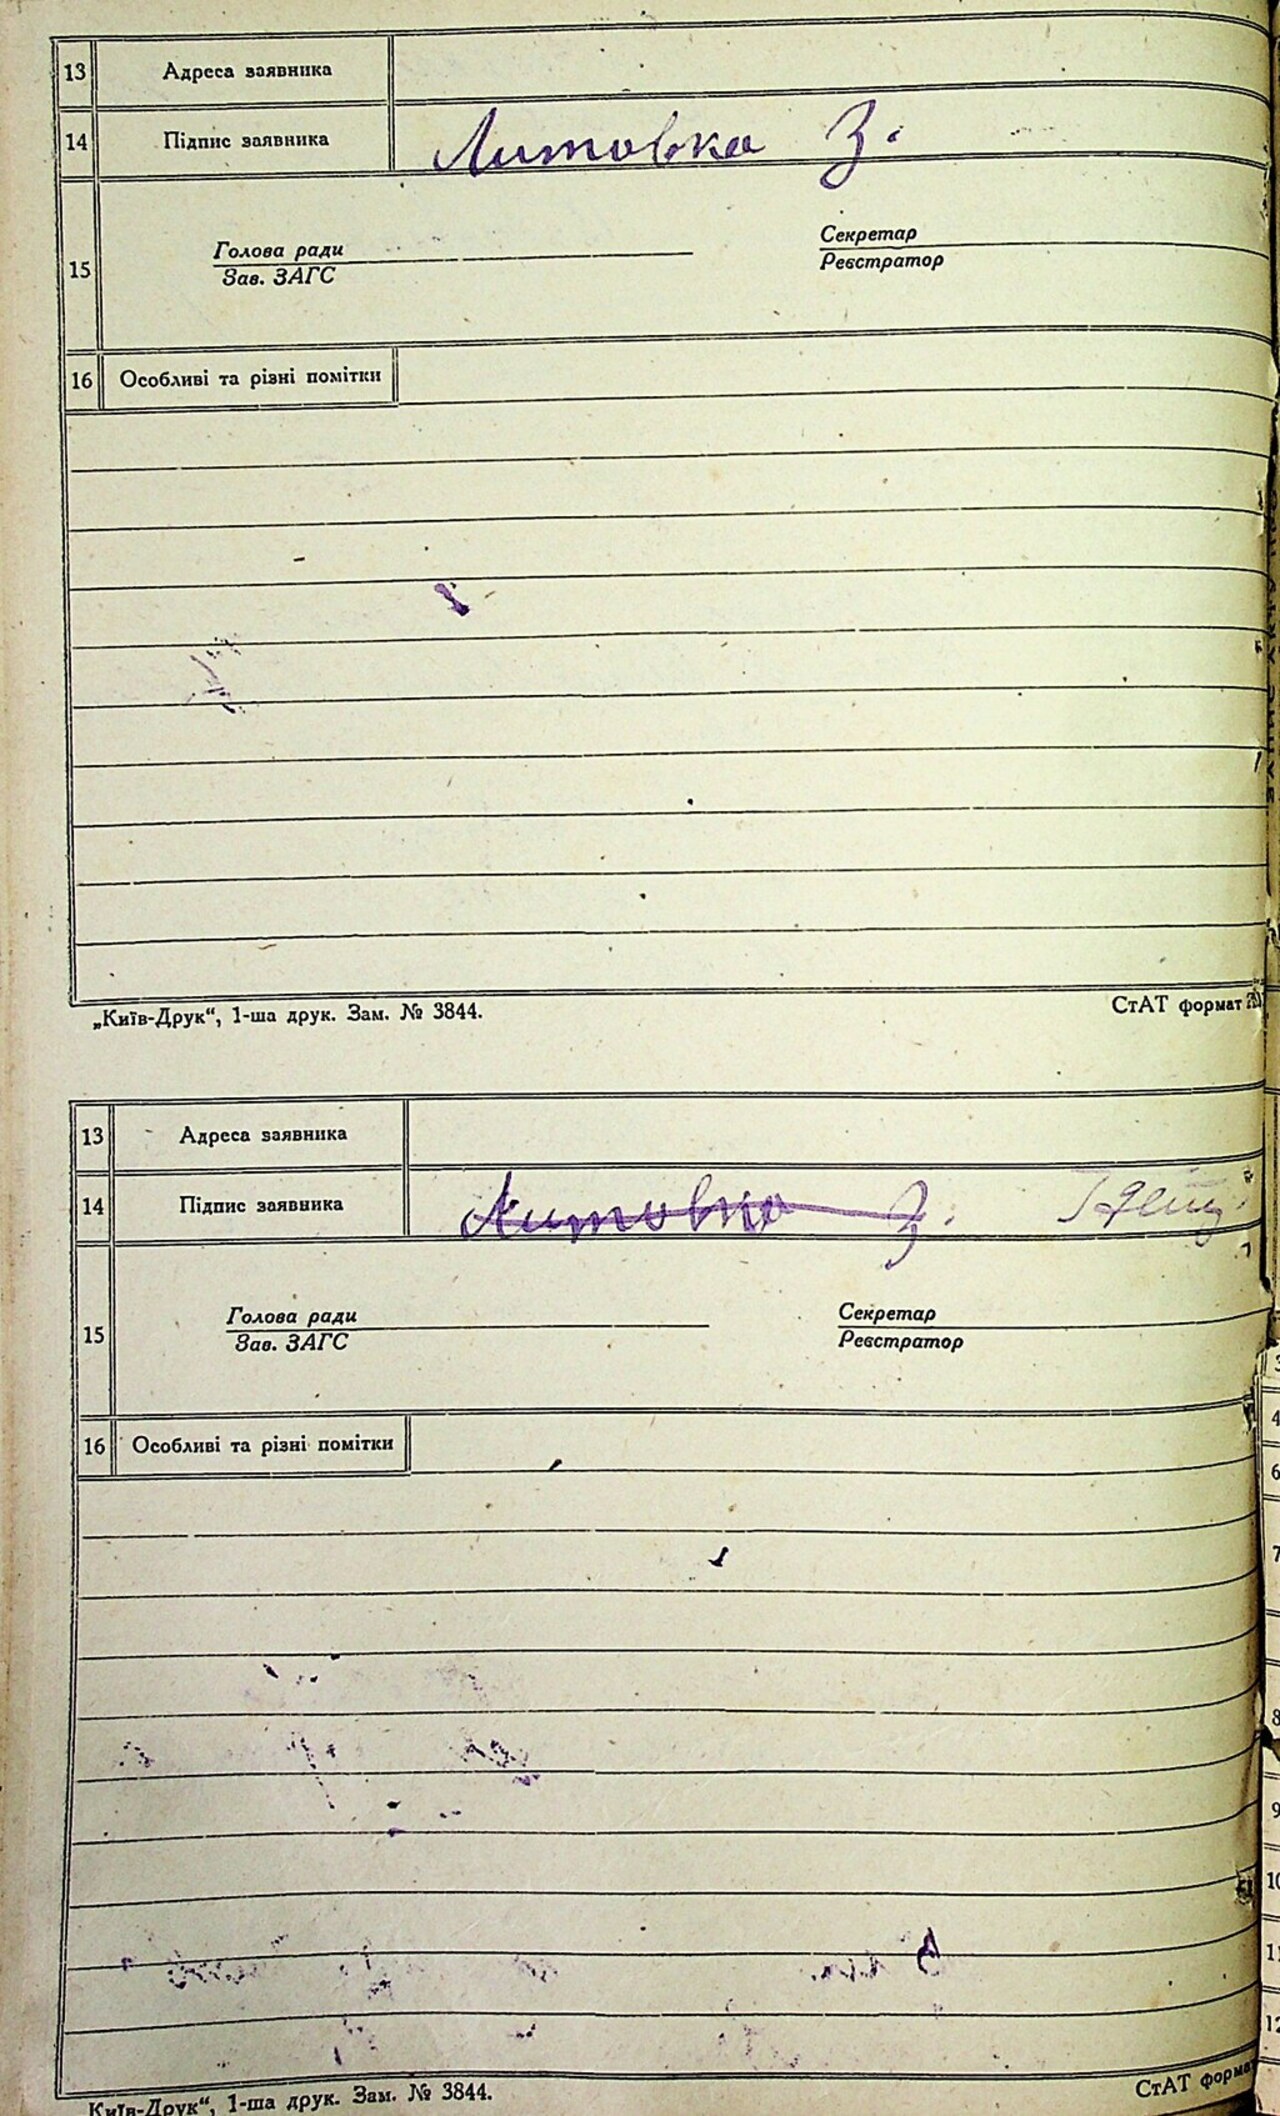 13 Адреса заявника
14 Підпис заявника Литовка З.
15 Голова ради Секретар
Зав. ЗАГС Реєстратор
16 Особливі та різні помітки
„Київ-Друк“, 1-ша друк. Зам. № 3844. СтАТ формат
13 Адреса заявника
14 Підпис заявника Литовка З.
15 Голова ради Секретар
Зав. ЗАГС Реєстратор
16 Особливі та різні помітки
„Київ-Друк“, 1-ша друк. Зам. № 3844. СтАТ формат